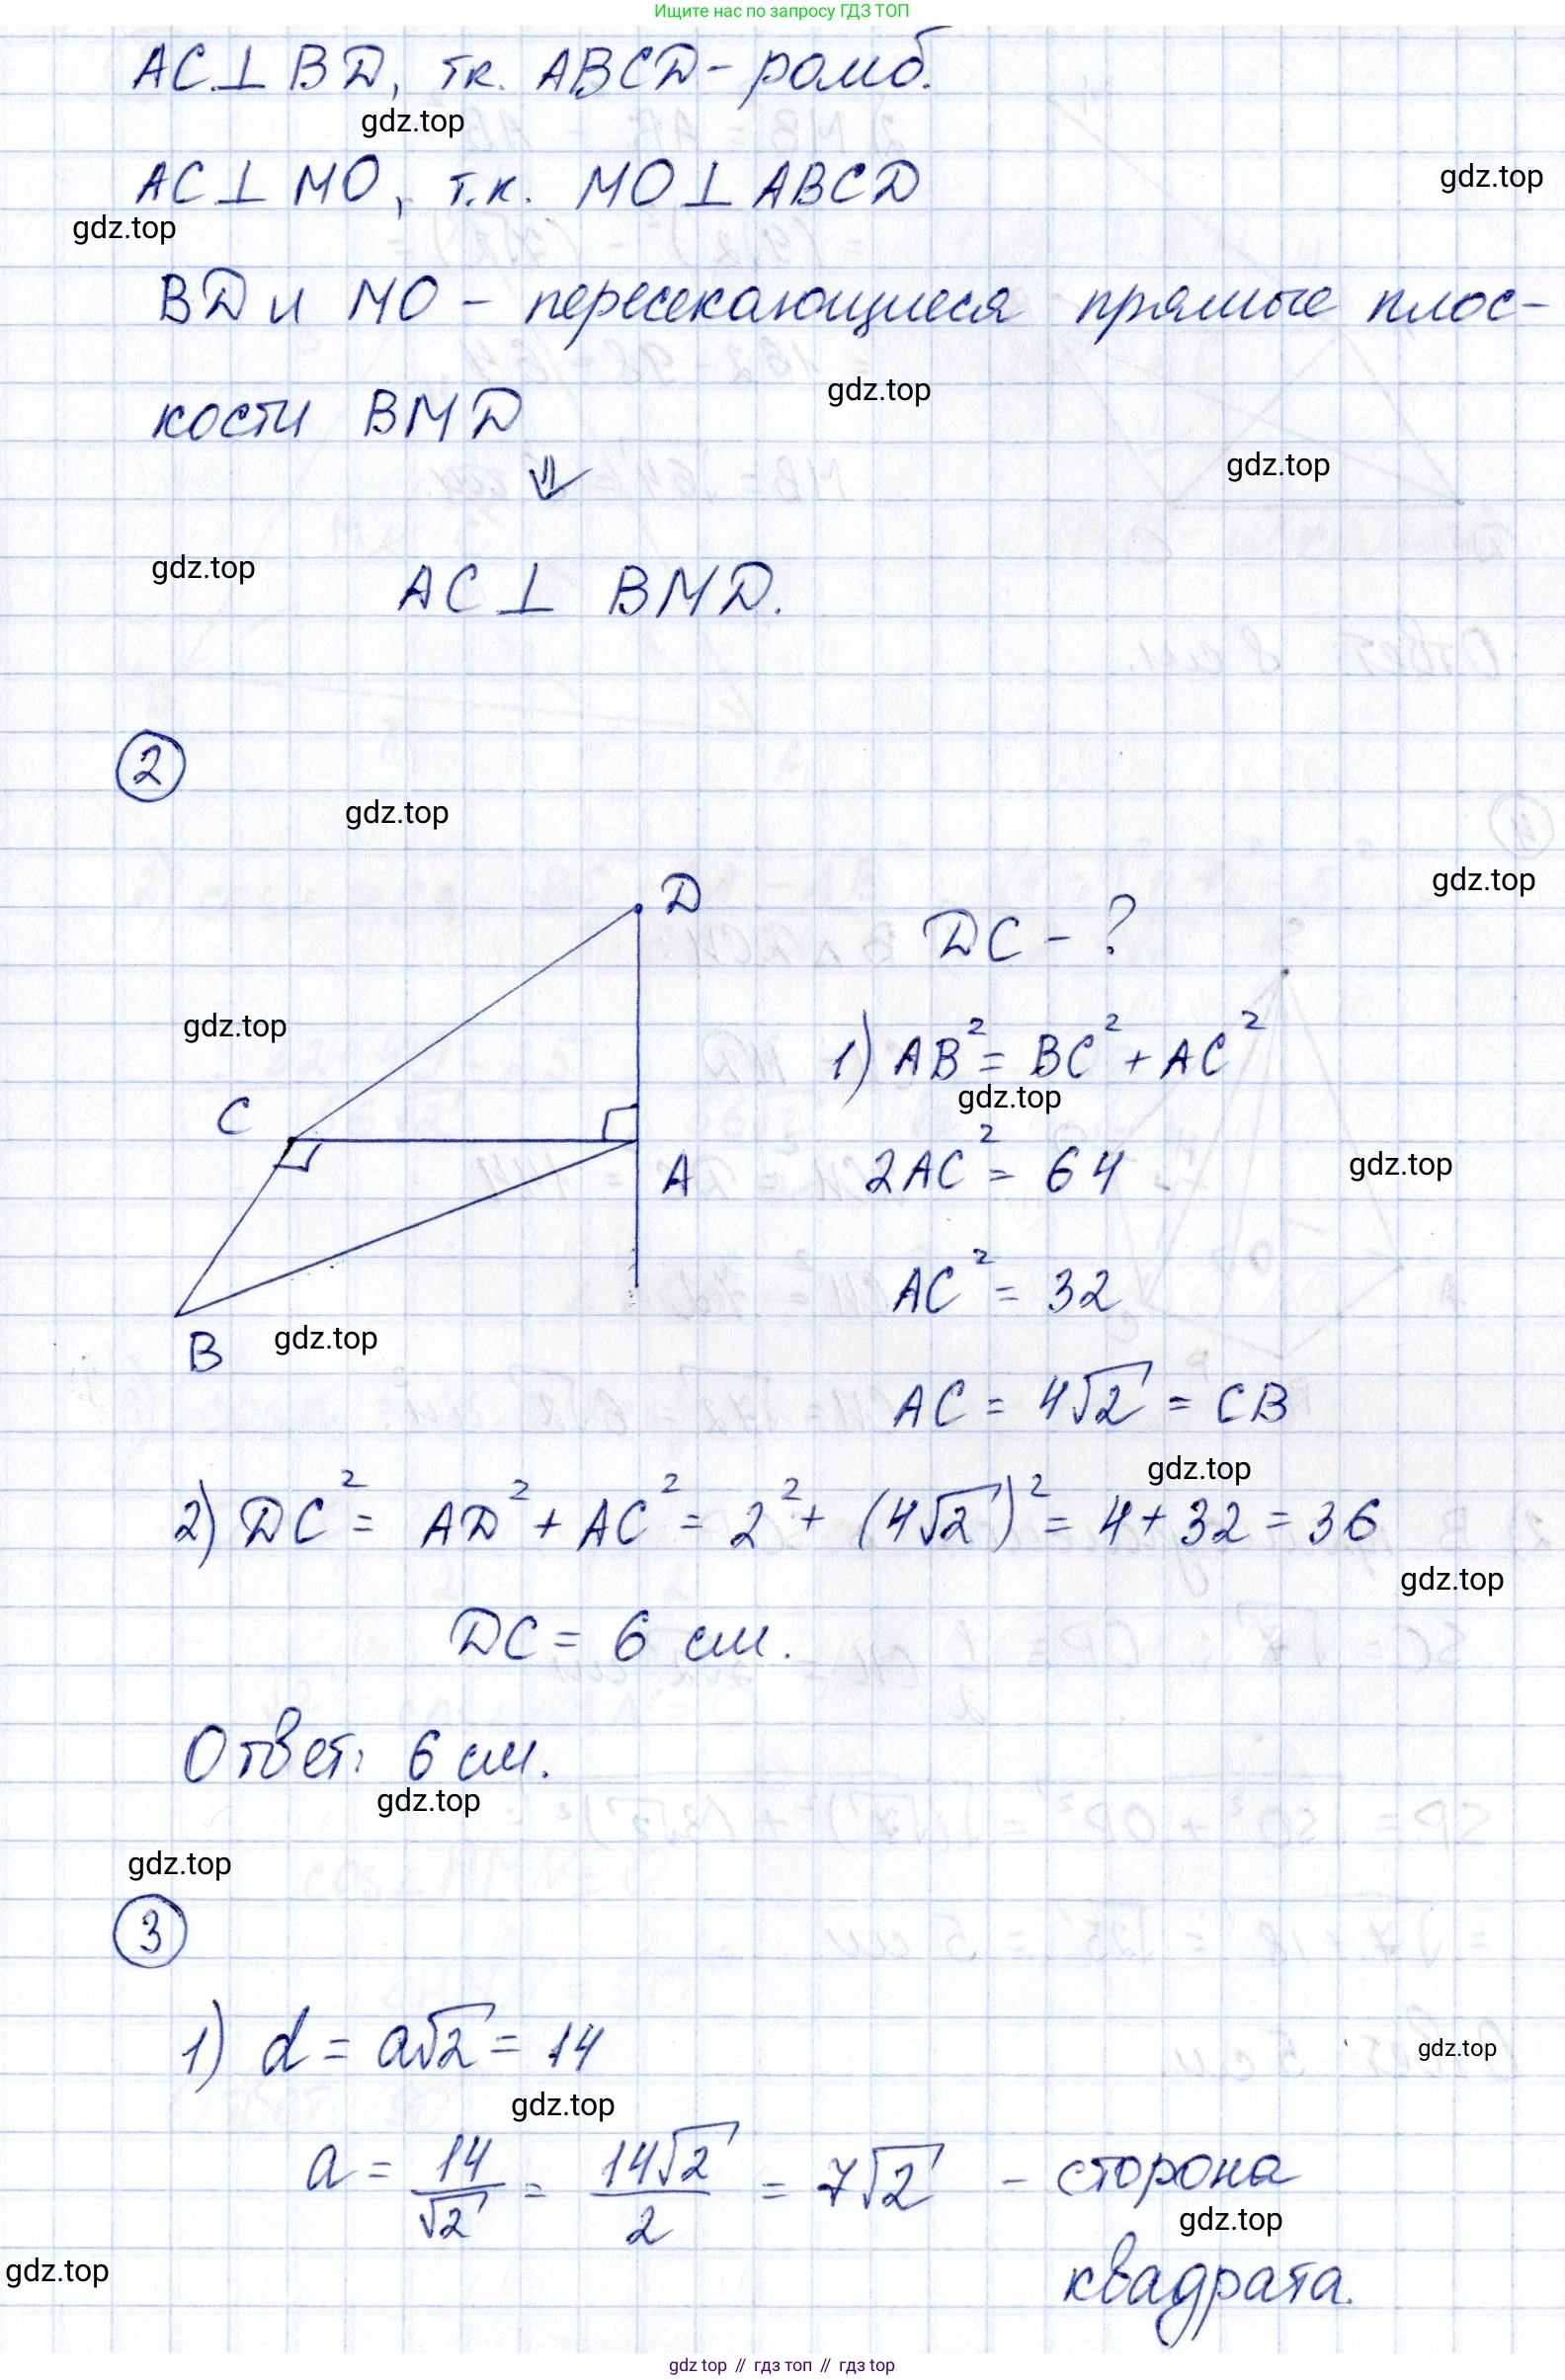 Ищите нас по запросу ГДЗ ТОП
AC ⊥ BD, тк. ABCD - ромб.
gdz.top
AC ⊥ MO, т.к. MO ⊥ ABCD
gdz.top
gdz.top
BD и MO - пересекающиеся прямые плос-
кости BMD
gdz.top
⇓
gdz.top
gdz.top
AC ⊥ BMD.
2
gdz.top
gdz.top
D
DC - ?
gdz.top
1) AB² = BC² + AC²
gdz.top
C
2AC² = 64
gdz.top
A
AC² = 32
B
gdz.top
AC = 4√2 = CB
gdz.top
2) DC² = AD² + AC² = 2² + (4√2)² = 4 + 32 = 36
gdz.top
DC = 6 см.
Ответ: 6 см.
gdz.top
gdz.top
3
1) d = a√2 = 14
gdz.top
gdz.top
a = 14/√2 = 14√2/2 = 7√2 - сторона
gdz.top
gdz.top
квадрата.
gdz top // гдз топ // gdz top